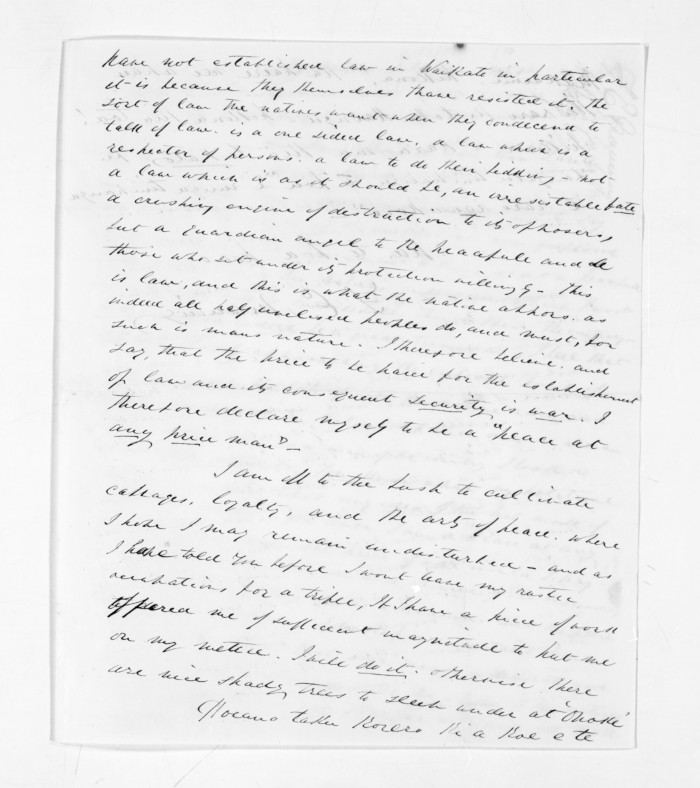 have not established law in Waikato in particular
it is because they themselves have resisted it; the
sort of law the natives want when they condecend to
talk of law. is a one sided law. a law which is a
respecter of persons. a law to do their bidding - not
a law which is as it should be, an irresistable fate
a crushing engine of destruction to its oposers,
but a guardian angel to the peacefule and
those who sit under its protection willingly - This
is law, and this is what the native abhors. as
indeed all half civilised peoples do, and must, for
such is mans nature. I therefore believe. and
say, that the price to be paid for the establishment
of law and its consequent security is war. I
therefore declare myself to be a "peace at
any price man" -
I am off to the bush to cultivate
cabages, loyalty, and the arts of peace. where
I hope I may remain undisturbed - and as
I have told you before I wont leave my rustic
occupations for a trifle, If I have a piece of work
offered me of sufficient magnitude to put me
on my mettle. I will do it. otherwise there
are nice shady trees to sleep under at
Noeano taku korero ki a koe e te